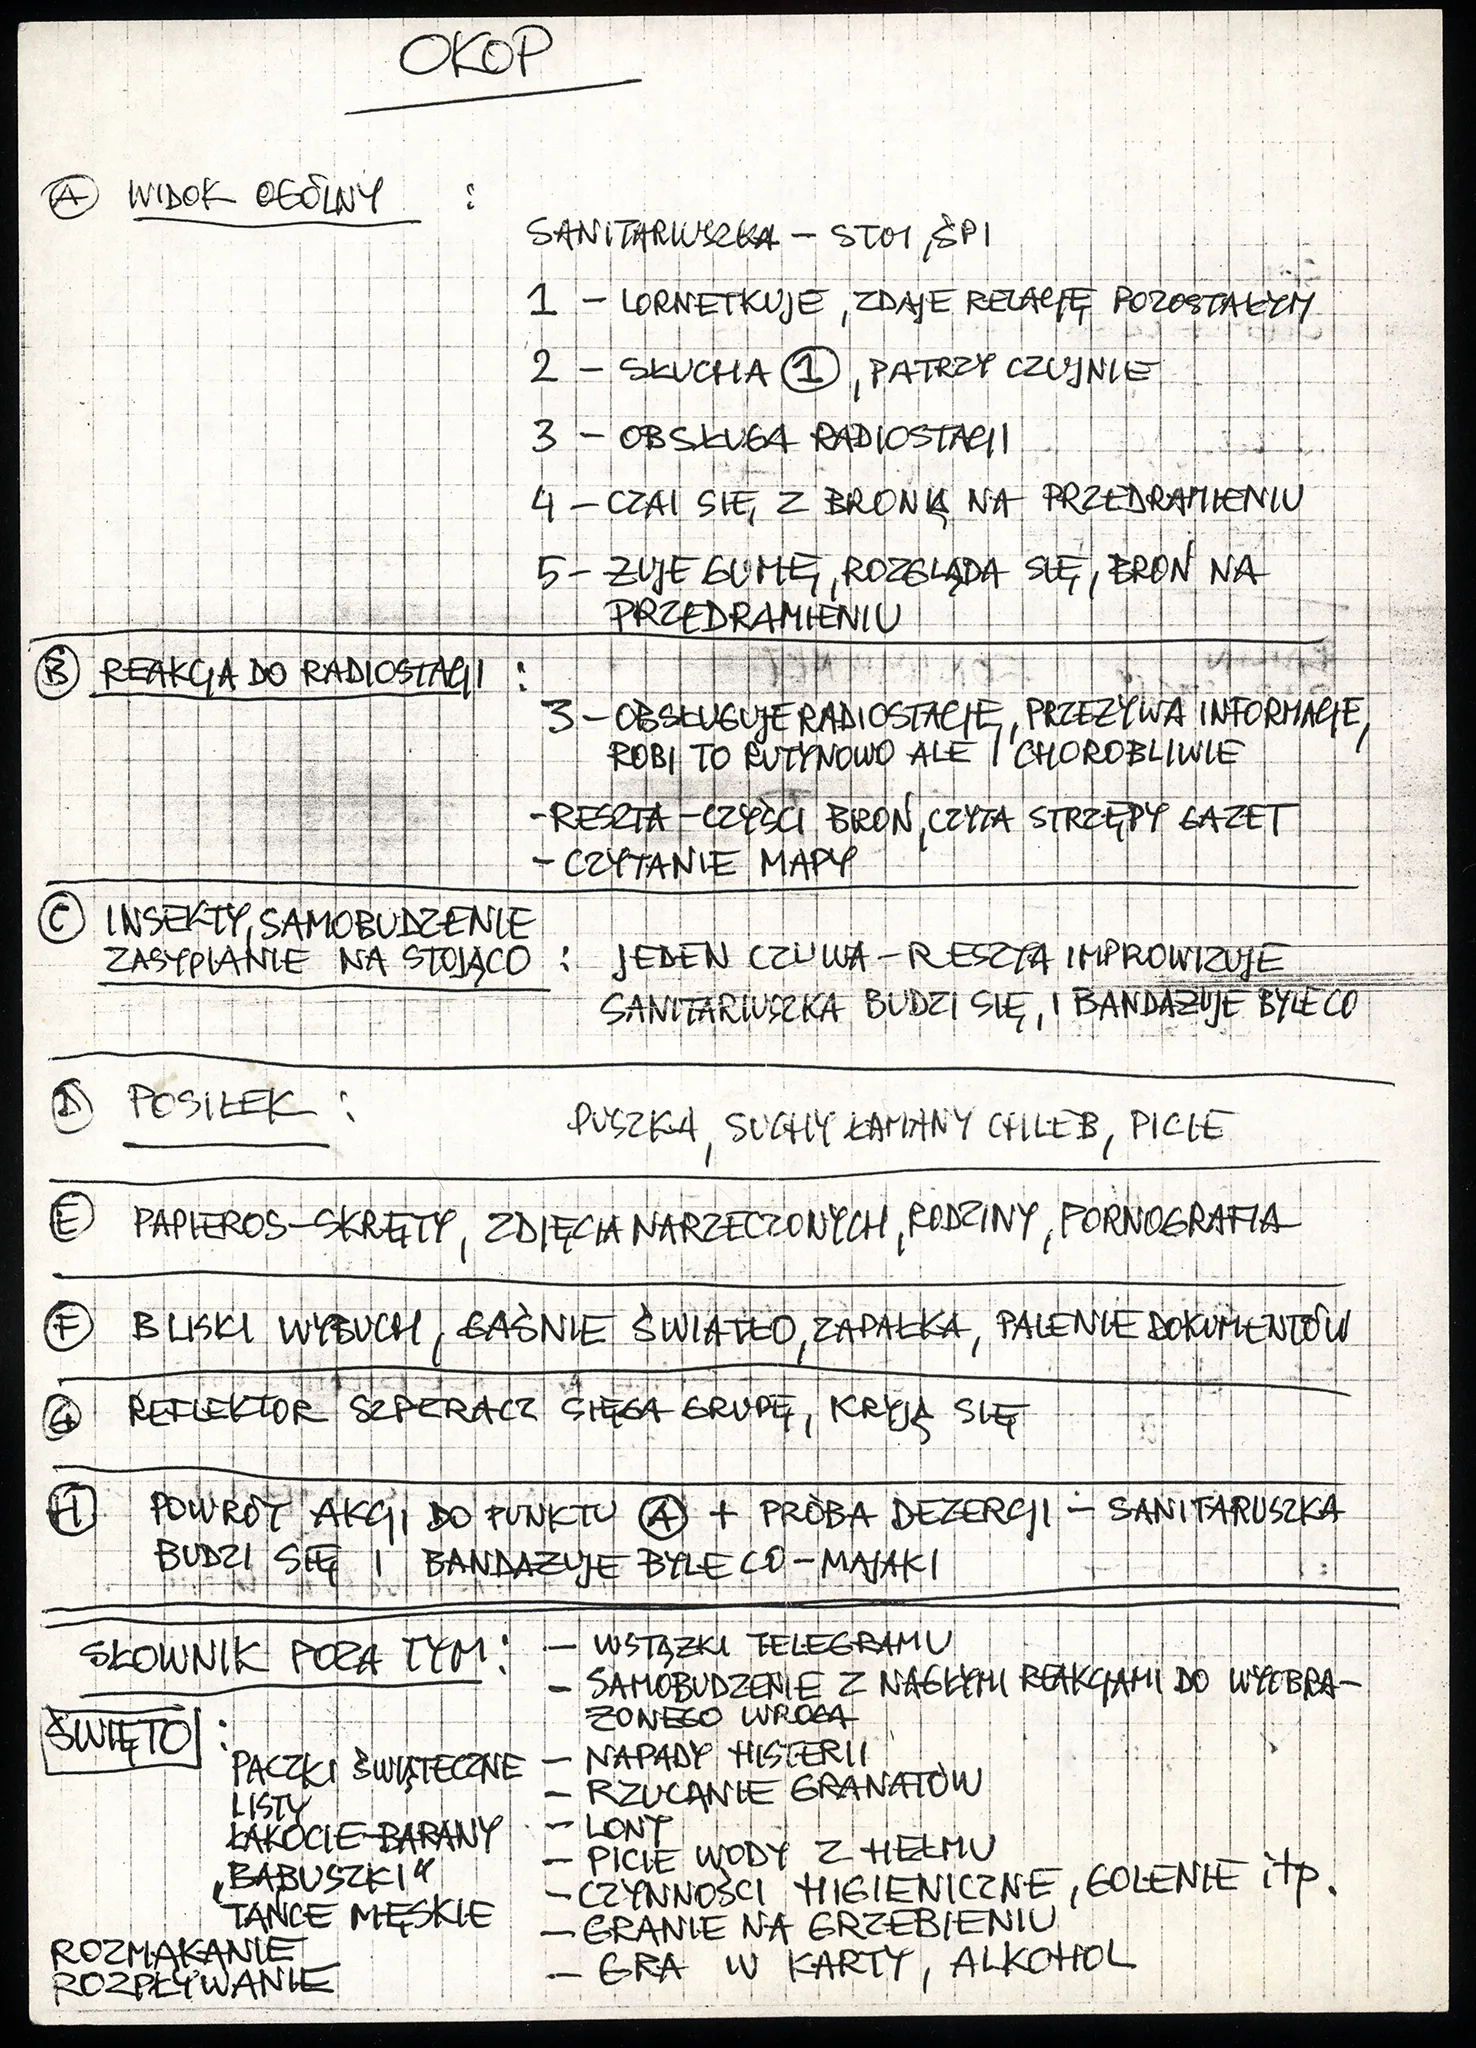 OKOP
Ⓐ WIDOK OGÓLNY :
SANITARIUSZKA – STOI, ŚPI
1 – LORNETKUJE, ZDAJE RELACJĘ POZOSTAŁYM
2 – SŁUCHA ①, PATRZY CZUJNIE
3 – OBSŁUGA RADIOSTACJI
4 – CZAI SIĘ, Z BRONIĄ NA PRZEDRAMIENIU
5 – ŻUJE GUMĘ, ROZGLĄDA SIĘ, BROŃ NA
PRZEDRAMIENIU
Ⓑ REAKCJA DO RADIOSTACJI :
3 – OBSŁUGUJE RADIOSTACJE, PRZEŻYWA INFORMACJE,
ROBI TO RUTYNOWO ALE I CHOROBLIWIE
- RESZTA – CZYŚCI BROŃ, CZYTA STRZĘPY GAZET
- CZYTANIE MAPY
Ⓒ INSEKTY, SAMOBUDZENIE
ZASYPIANIE NA STOJĄCO : JEDEN CZUWA – RESZTA IMPROWIZUJE
SANITARIUSZKA BUDZI SIĘ, I BANDAŻUJE BYLE CO
Ⓓ POSIŁEK : PUSZKA, SUCHY ŁAMANY CHLEB, PICIE
Ⓔ PAPIEROS – SKRĘTY, ZDJĘCIA NARZECZONYCH, RODZINY, PORNOGRAFIA
Ⓕ BLISKI WYBUCH, GAŚNIE ŚWIATŁO, ZAPAŁKA, PALENIE DOKUMENTÓW
Ⓖ REFLEKTOR SZPERACZ SIĘGA GRUPĘ, KRYJĄ SIĘ
Ⓗ POWRÓT AKCJI DO PUNKTU Ⓐ + PRÓBA DEZERCJI – SANITARUSZKA
BUDZI SIĘ I BANDAŻUJE BYLE CO – MAJAKI
SŁOWNIK POZA TYM : – WSTĄŻKI TELEGRAMU
– SAMOBUDZENIE Z NAGŁYMI REAKCJAMI DO WYOBRA-
ŻONEGO WROGA
– NAPADY HISTERII
– RZUCANIE GRANATÓW
– LONT
– PICIE WODY Z HEŁMU
– CZYNNOŚCI HIGIENICZNE, GOLENIE itp.
– GRANIE NA GRZEBIENIU
– GRA W KARTY, ALKOHOL
ŚWIĘTO :
PACZKI ŚWIĄTECZNE
LISTY
ŁAKOCIE – BARANY
„BABUSZKI"
TAŃCE MĘSKIE
ROZMAKANIE
ROZPŁYWANIE